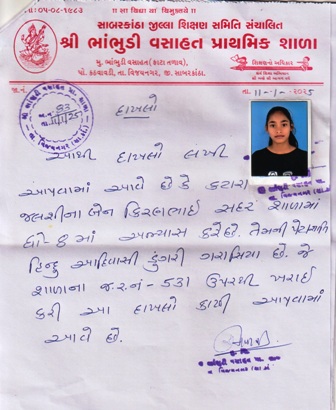 તા:૦૫-૦૮-૧૯૮૩
॥ સા વિદ્યા યા વિમુક્તયે ॥
સાબરકાંઠા જીલ્લા શિક્ષણ સમિતિ સંચાલિત
શ્રી ભાંભુડી વસાહત પ્રાથમિક શાળા
મુ. ભાંભુડી વસાહત(કાટા તળાવ),
પો. કઠવાવડી, તા. વિજયનગર, જી. સાબરકાંઠા.
જા.નં.
93
તા. 11-1-2025
દાખલો
આથી દાખલો લખી
આપવામાં આવે છે કે કટારા
જલ્સીના બેન કિરણભાઈ સદર શાળામાં
ધો-8 માં અભ્યાસ કરે છે. તેમની પેટાજાતિ
હિન્દુ આદિવાસી ડુંગરી ગરાસિયા છે. જે
શાળાના જ.ર.નં-531 ઉપરથી ખરાઈ
કરી આ દાખલો કાઢી આપવામાં
આવે છે.